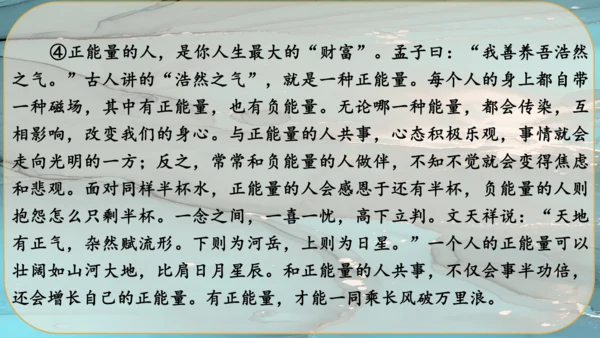 ④正能量的人，是你人生最大的“财富”。孟子曰：“我善养吾浩然
之气。”古人讲的“浩然之气”，就是一种正能量。每个人的身上都自带
一种磁场，其中有正能量，也有负能量。无论哪一种能量，都会传染，互
相影响，改变我们的身心。与正能量的人共事，心态积极乐观，事情就会
走向光明的一方；反之，常常和负能量的人做伴，不知不觉就会变得焦虑
和悲观。面对同样半杯水，正能量的人会感恩于还有半杯，负能量的人则
抱怨怎么只剩半杯。一念之间，一喜一忧，高下立判。文天祥说：“天地
有正气，杂然赋流形。下则为河岳，上则为日星。”一个人的正能量可以
壮阔如山河大地，比肩日月星辰。和正能量的人共事，不仅会事半功倍，
还会增长自己的正能量。有正能量，才能一同乘长风破万里浪。